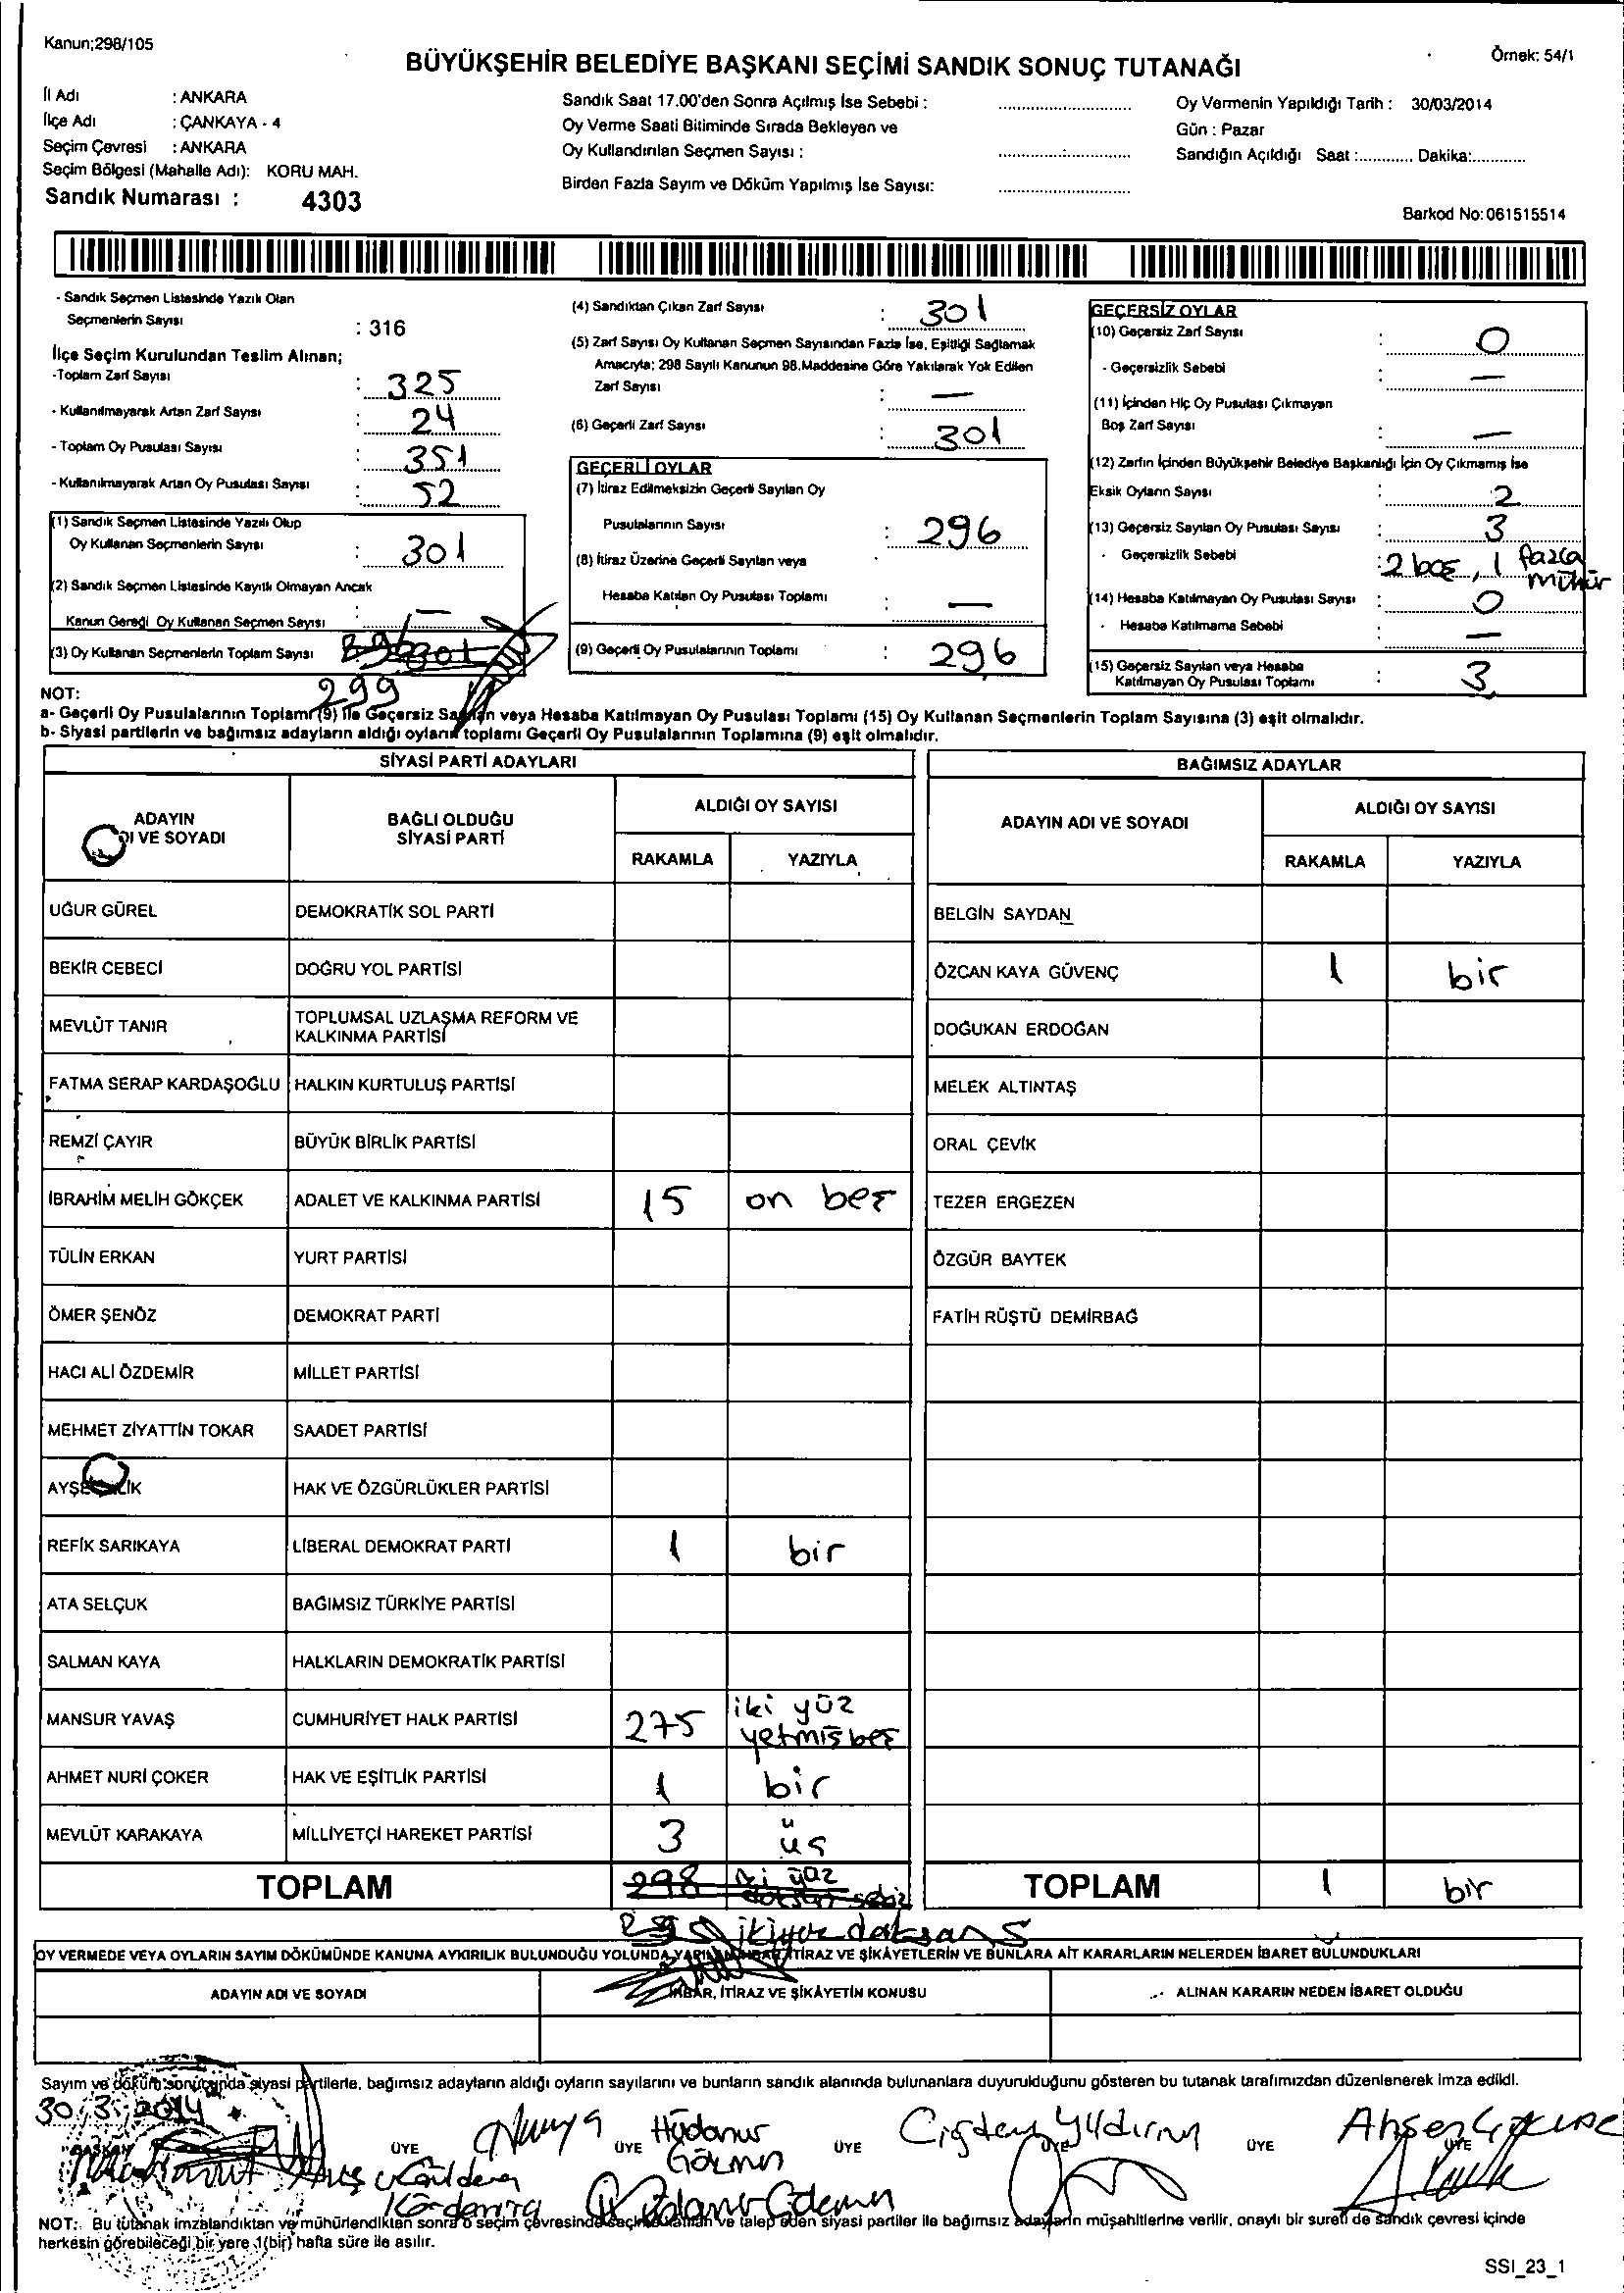 Kanun;298/105
BÜYÜKŞEHİR BELEDİYE BAŞKANI SEÇİMİ SANDIK SONUÇ TUTANAĞI
Örnek: 54/1
İl Adı : ANKARA
İlçe Adı : ÇANKAYA - 4
Seçim Çevresi : ANKARA
Seçim Bölgesi (Mahalle Adı): KORU MAH.
Sandık Numarası : 4303
Sandık Saat 17.00'den Sonra Açılmış İse Sebebi :
Oy Verme Saati Bitiminde Sırada Bekleyen ve
Oy Kullandırılan Seçmen Sayısı :
Birden Fazla Sayım ve Döküm Yapılmış İse Sayısı:
Oy Vermenin Yapıldığı Tarih : 30/03/2014
Gün : Pazar
Sandığın Açıldığı Saat :............ Dakika:............
Barkod No: 061515514
- Sandık Seçmen Listesinde Yazılı Olan
Seçmenlerin Sayısı : 316
İlçe Seçim Kurulundan Teslim Alınan;
-Toplam Zarf Sayısı : 325
- Kullanılmayarak Artan Zarf Sayısı : 24
- Toplam Oy Pusulası Sayısı : 351
- Kullanılmayarak Artan Oy Pusulası Sayısı : 52
(1) Sandık Seçmen Listesinde Yazılı Olup
Oy Kullanan Seçmenlerin Sayısı : 301
(2) Sandık Seçmen Listesinde Kayıtlı Olmayan Ancak
Kanun Gereği Oy Kullanan Seçmen Sayısı : —
(3) Oy Kullanan Seçmenlerin Toplam Sayısı 301
299
(4) Sandıktan Çıkan Zarf Sayısı : 301
(5) Zarf Sayısı Oy Kullanan Seçmen Sayısından Fazla İse, Eşitliği Sağlamak
Amacıyla; 298 Sayılı Kanunun 98.Maddesine Göre Yakılarak Yok Edilen
Zarf Sayısı : —
(6) Geçerli Zarf Sayısı : 301
GEÇERLİ OYLAR
(7) İtiraz Edilmeksizin Geçerli Sayılan Oy
Pusulalarının Sayısı : 296
(8) İtiraz Üzerine Geçerli Sayılan veya
Hesaba Katılan Oy Pusulası Toplamı : —
(9) Geçerli Oy Pusulalarının Toplamı : 296
GEÇERSİZ OYLAR
(10) Geçersiz Zarf Sayısı : 0
- Geçersizlik Sebebi : —
(11) İçinden Hiç Oy Pusulası Çıkmayan
Boş Zarf Sayısı : —
(12) Zarfın İçinden Büyükşehir Belediye Başkanlığı İçin Oy Çıkmamış İse
Eksik Oyların Sayısı : 2
(13) Geçersiz Sayılan Oy Pusulası Sayısı : 3
- Geçersizlik Sebebi : 2 boş, 1 fazla
mühür
(14) Hesaba Katılmayan Oy Pusulası Sayısı : 0
- Hesaba Katılmama Sebebi : —
(15) Geçersiz Sayılan veya Hesaba
Katılmayan Oy Pusulası Toplamı : 3
NOT:
a- Geçerli Oy Pusulalarının Toplamı (9) ile Geçersiz Sayılan veya Hesaba Katılmayan Oy Pusulası Toplamı (15) Oy Kullanan Seçmenlerin Toplam Sayısına (3) eşit olmalıdır.
b- Siyasi partilerin ve bağımsız adayların aldığı oyların toplamı Geçerli Oy Pusulalarının Toplamına (9) eşit olmalıdır.
SİYASİ PARTİ ADAYLARI
ADAYIN
ADI VE SOYADI
BAĞLI OLDUĞU
SİYASİ PARTİ
ALDIĞI OY SAYISI
RAKAMLA YAZIYLA
UĞUR GÜREL DEMOKRATİK SOL PARTİ
BEKİR CEBECİ DOĞRU YOL PARTİSİ
MEVLÜT TANIR TOPLUMSAL UZLAŞMA REFORM VE
KALKINMA PARTİSİ
FATMA SERAP KARDAŞOĞLU HALKIN KURTULUŞ PARTİSİ
REMZİ ÇAYIR BÜYÜK BİRLİK PARTİSİ
İBRAHİM MELİH GÖKÇEK ADALET VE KALKINMA PARTİSİ 15 on beş
TÜLİN ERKAN YURT PARTİSİ
ÖMER ŞENÖZ DEMOKRAT PARTİ
HACI ALİ ÖZDEMİR MİLLET PARTİSİ
MEHMET ZİYATTİN TOKAR SAADET PARTİSİ
AYŞE HAK VE ÖZGÜRLÜKLER PARTİSİ
REFİK SARIKAYA LİBERAL DEMOKRAT PARTİ 1 bir
ATA SELÇUK BAĞIMSIZ TÜRKİYE PARTİSİ
SALMAN KAYA HALKLARIN DEMOKRATİK PARTİSİ
MANSUR YAVAŞ CUMHURİYET HALK PARTİSİ 275 iki yüz
yetmiş beş
AHMET NURİ ÇOKER HAK VE EŞİTLİK PARTİSİ 1 bir
MEVLÜT KARAKAYA MİLLİYETÇİ HAREKET PARTİSİ 3 üç
TOPLAM 298 iki yüz
doksan sekiz
BAĞIMSIZ ADAYLAR
ADAYIN ADI VE SOYADI
ALDIĞI OY SAYISI
RAKAMLA YAZIYLA
BELGİN SAYDAN
ÖZCAN KAYA GÜVENÇ 1 bir
DOĞUKAN ERDOĞAN
MELEK ALTINTAŞ
ORAL ÇEVİK
TEZER ERGEZEN
ÖZGÜR BAYTEK
FATİH RÜŞTÜ DEMİRBAĞ
TOPLAM 1 bir
OY VERMEDE VEYA OYLARIN SAYIM DÖKÜMÜNDE KANUNA AYKIRILIK BULUNDUĞU YOLUNDA YAPILAN İHBAR, İTİRAZ VE ŞİKÂYETLERİN VE BUNLARA AİT KARARLARIN NELERDEN İBARET BULUNDUKLARI
ADAYIN ADI VE SOYADI
İHBAR, İTİRAZ VE ŞİKÂYETİN KONUSU
ALINAN KARARIN NEDEN İBARET OLDUĞU
Sayım ve döküm sonucunda siyasi partilerle, bağımsız adayların aldığı oyların sayılarını ve bunların sandık alanında bulunanlara duyurulduğunu gösteren bu tutanak tarafımızdan düzenlenerek imza edildi.
30/3/2014
BAŞKAN ÜYE ÜYE ÜYE ÜYE ÜYE
Hüdanur
Çiğdem Yıldırım
NOT: Bu tutanak imzalandıktan ve mühürlendikten sonra o seçim çevresinde seçime katılan ve talep eden siyasi partiler ile bağımsız adayların müşahitlerine verilir, onaylı bir sureti de sandık çevresi içinde
herkesin görebileceği bir yere 1(bir) hafta süre ile asılır.
SSI_23_1